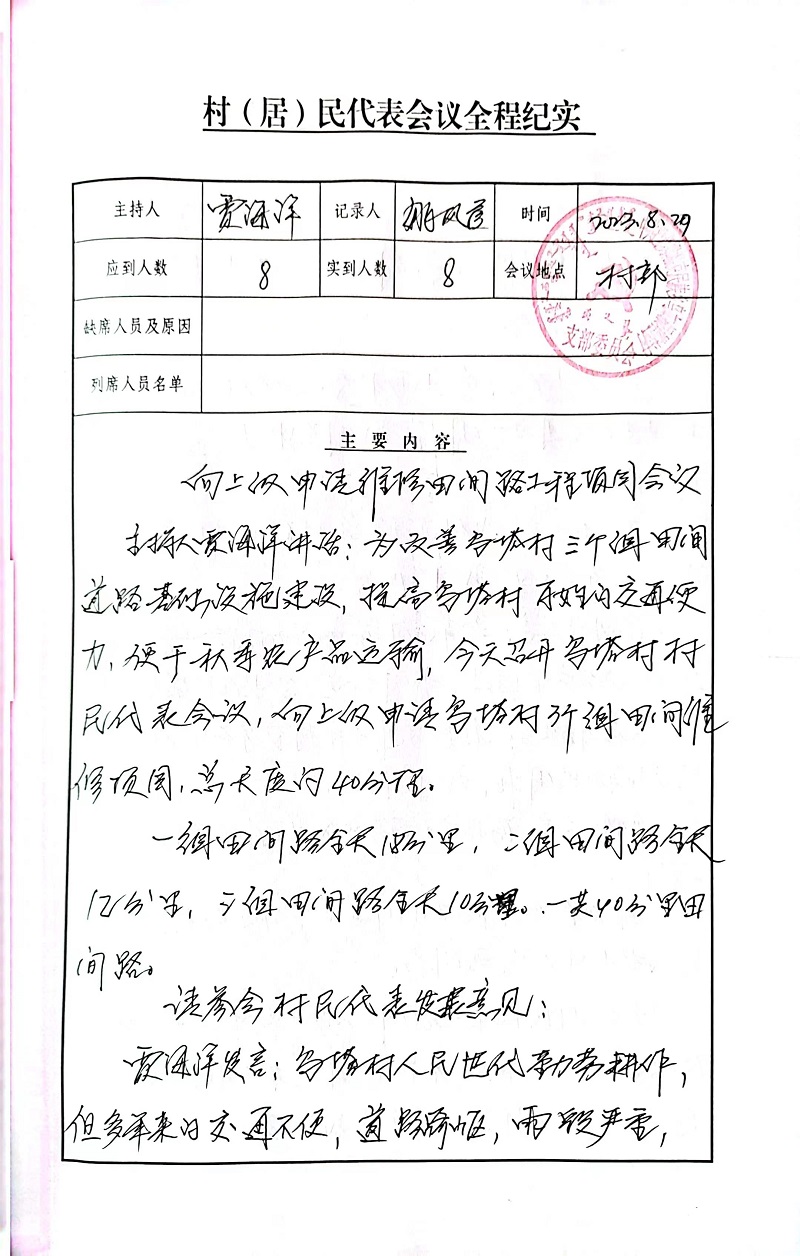 村（居）民代表会议全程纪实
主持人 贾海洋 记录人 时间 2023.8.29
应到人数 8 实到人数 8 会议地点 村部
缺席人员及原因
列席人员名单
支部委员会
主要内容
向上级申请维修田间路工程项目会议
主持人贾海洋讲话：为改善乌塔村三个组田间
道路基础设施建设，提高乌塔村百姓的交通便
力，便于秋季农产品运输，今天召开乌塔村村
民代表会议，向上级申请乌塔村3个组田间维
修项目，总长度约40公里。
一组田间路全长18公里，二组田间路全长
12公里，三组田间路全长10公里。一共40公里田
间路。
请参会村民代表发表意见：
贾海洋发言：乌塔村人民世代勤劳耕作，
但多年来的交通不便，道路崎岖，雨毁严重，